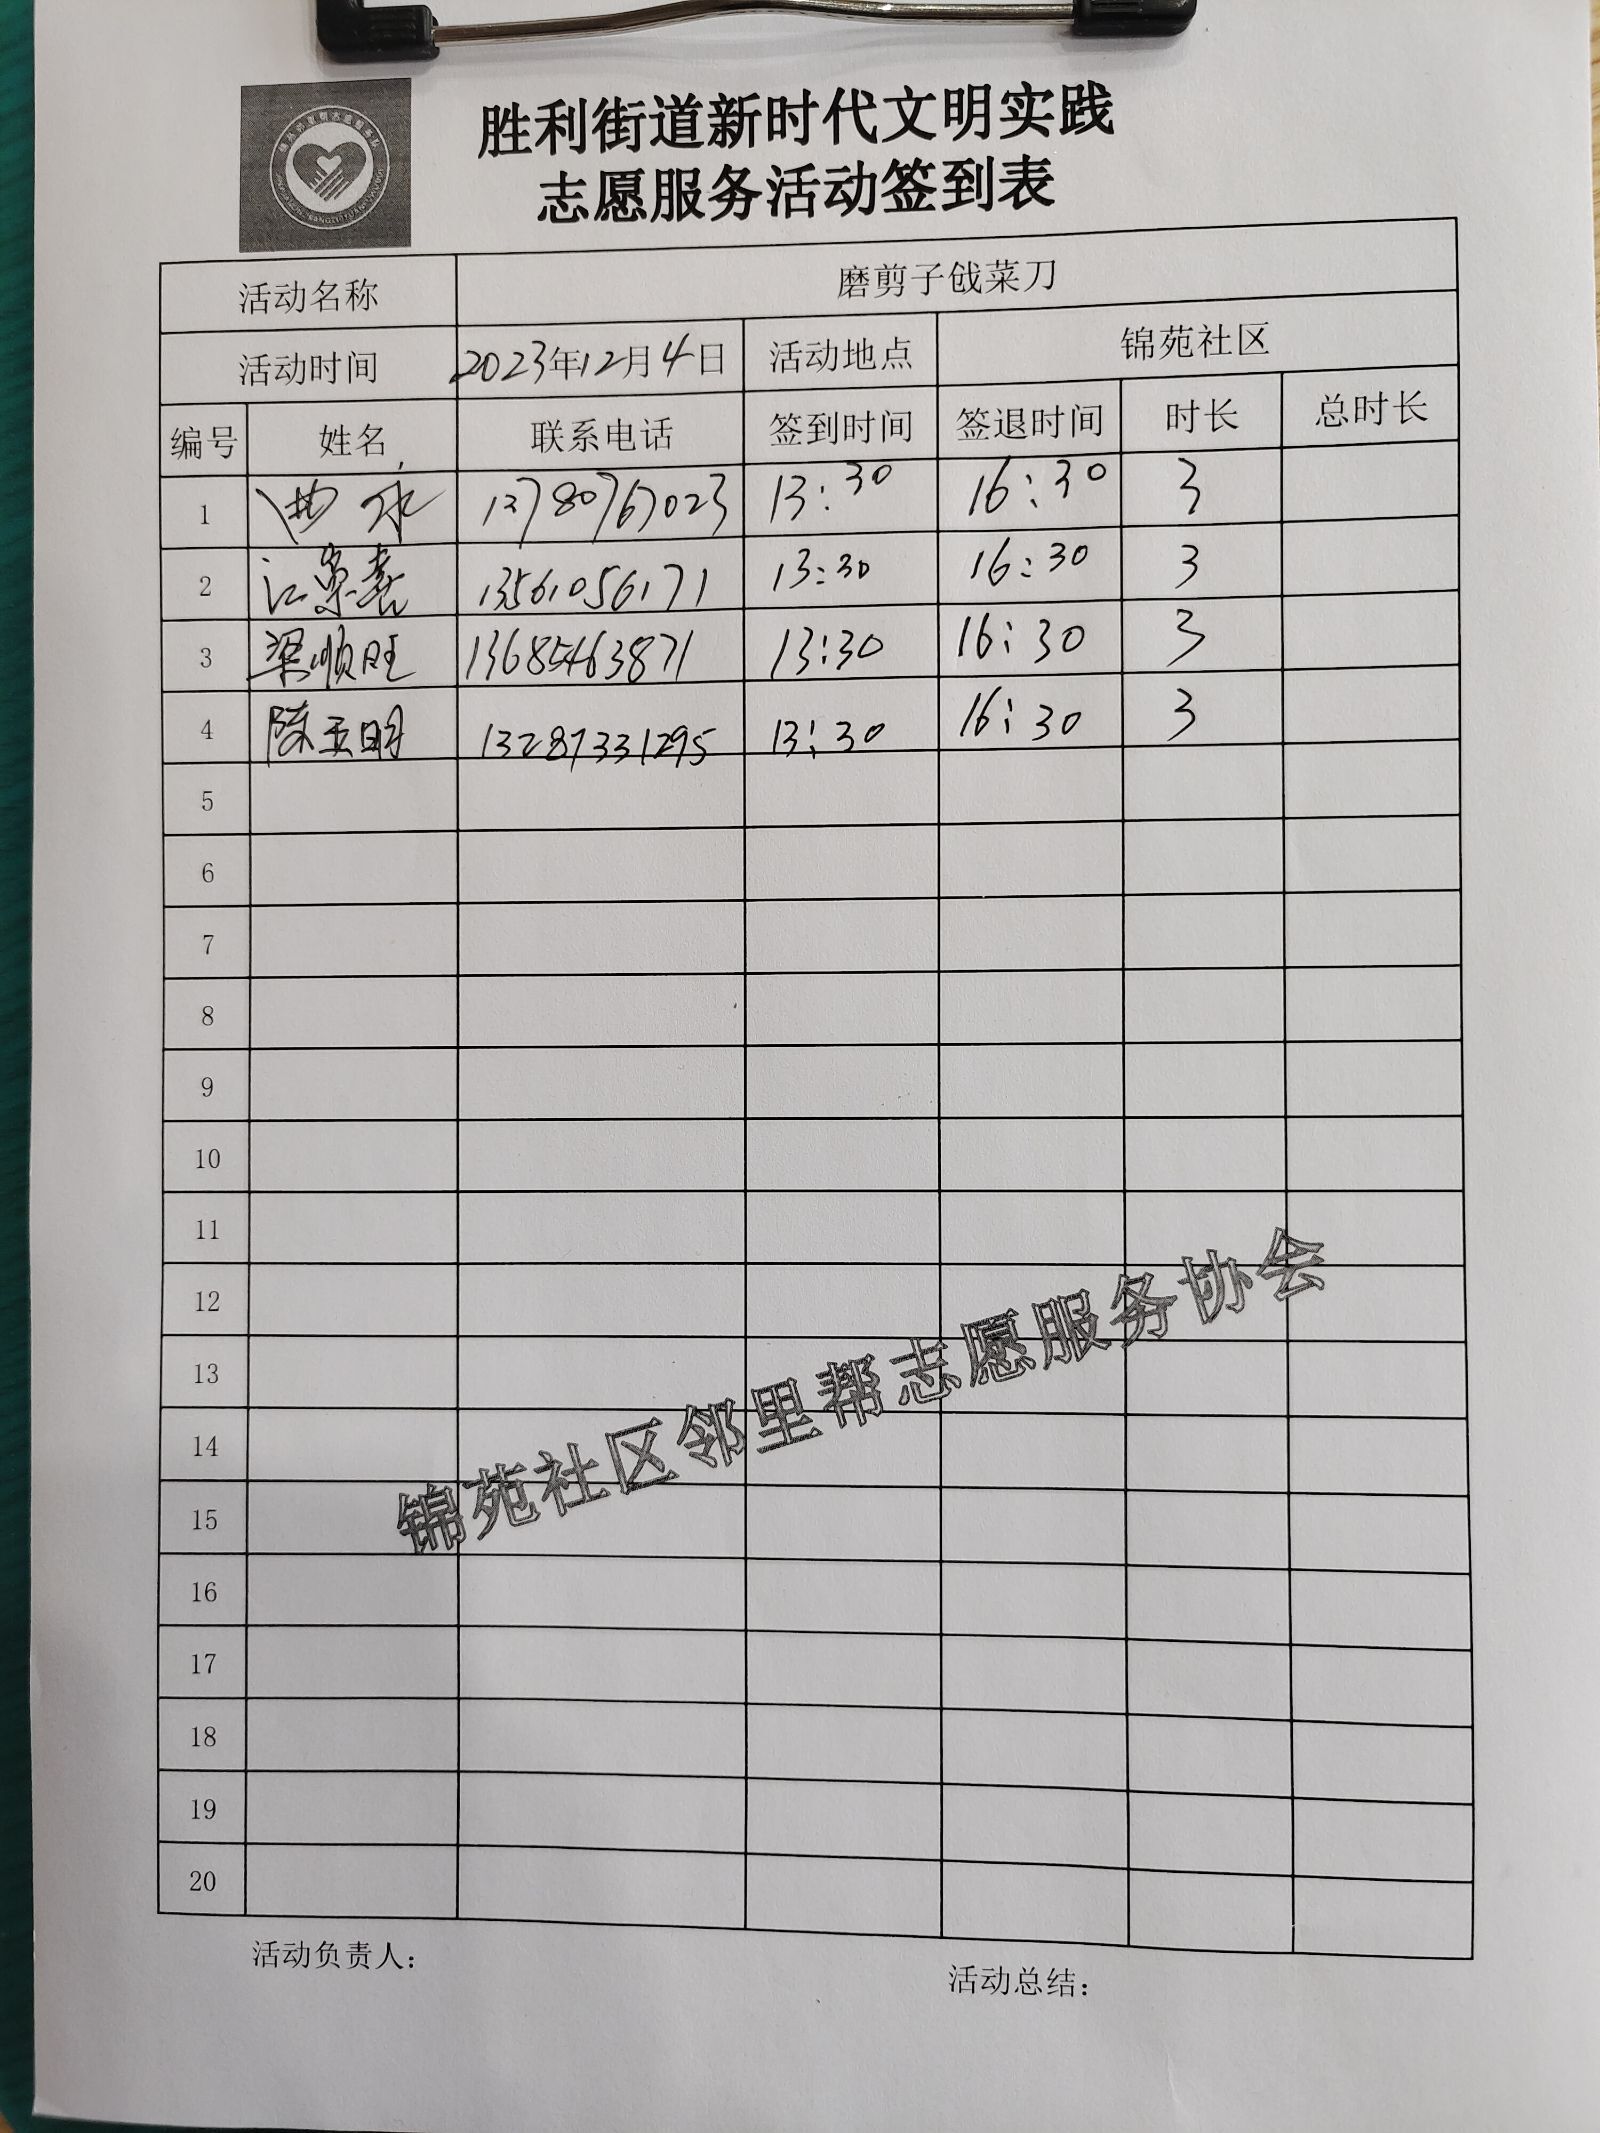 胜利街道新时代文明实践
志愿服务活动签到表
活动名称 磨剪子戗菜刀
活动时间 2023年12月4日 活动地点 锦苑社区
编号 姓名 联系电话 签到时间 签退时间 时长 总时长
1 13780767023 13:30 16:30 3
2 江荣喜 13561056171 13:30 16:30 3
3 梁顺旺 13685463871 13:30 16:30 3
4 陈玉明 13287331295 13:30 16:30 3
5
6
7
8
9
10
11
12
13
14
15
16
17
18
19
20
锦苑社区邻里帮志愿服务协会
活动负责人：
活动总结：